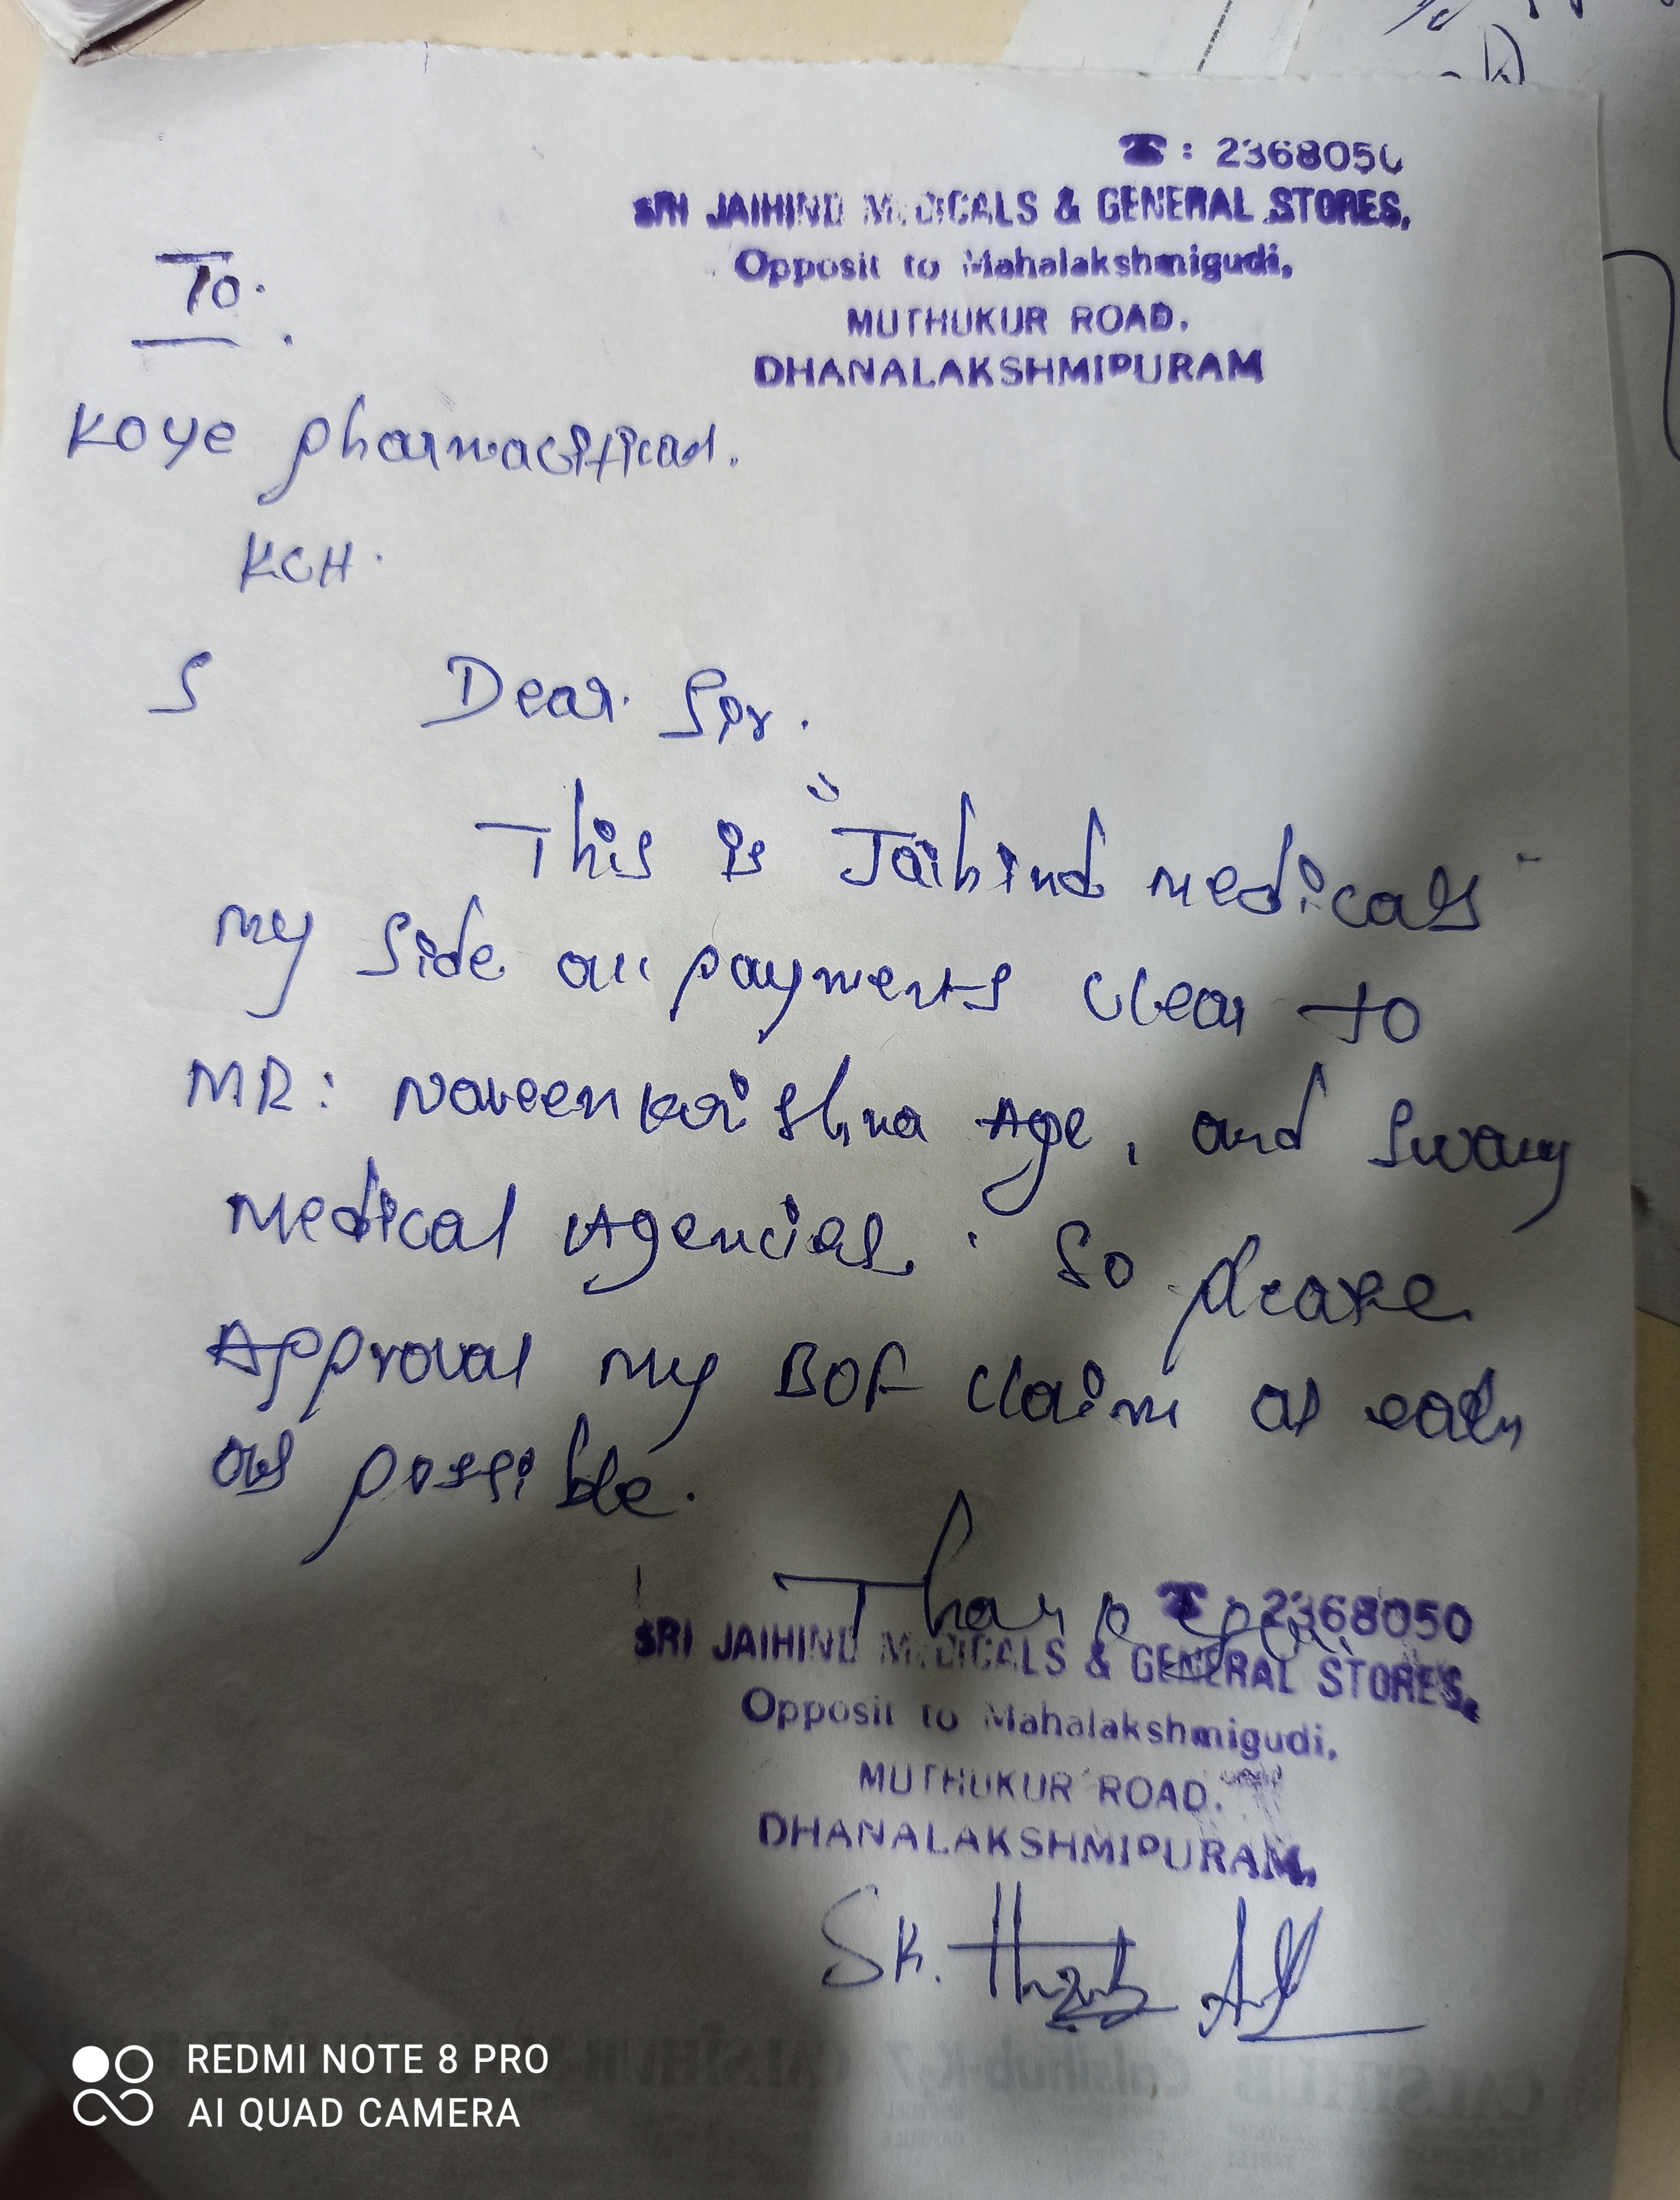 ☎: 2368050
SRI JAIHIND MEDICALS & GENERAL STORES,
Opposit to Mahalakshmigudi,
MUTHUKUR ROAD.
DHANALAKSHMIPURAM
To.
Koye pharmacitical.
KCH.
S Dear Sir.
This is "Jaihind medicals"
my side all payments clear to
MR: Naveen krishna Age, and Swamy
Medical Agencies. So please
Approval my BOF claim as early
as possible.
Thank you
☎: 2368050
SRI JAIHIND MEDICALS & GENERAL STORES,
Opposit to Mahalakshmigudi,
MUTHUKUR ROAD.
DHANALAKSHMIPURAM,
SK.
REDMI NOTE 8 PRO
AI QUAD CAMERA